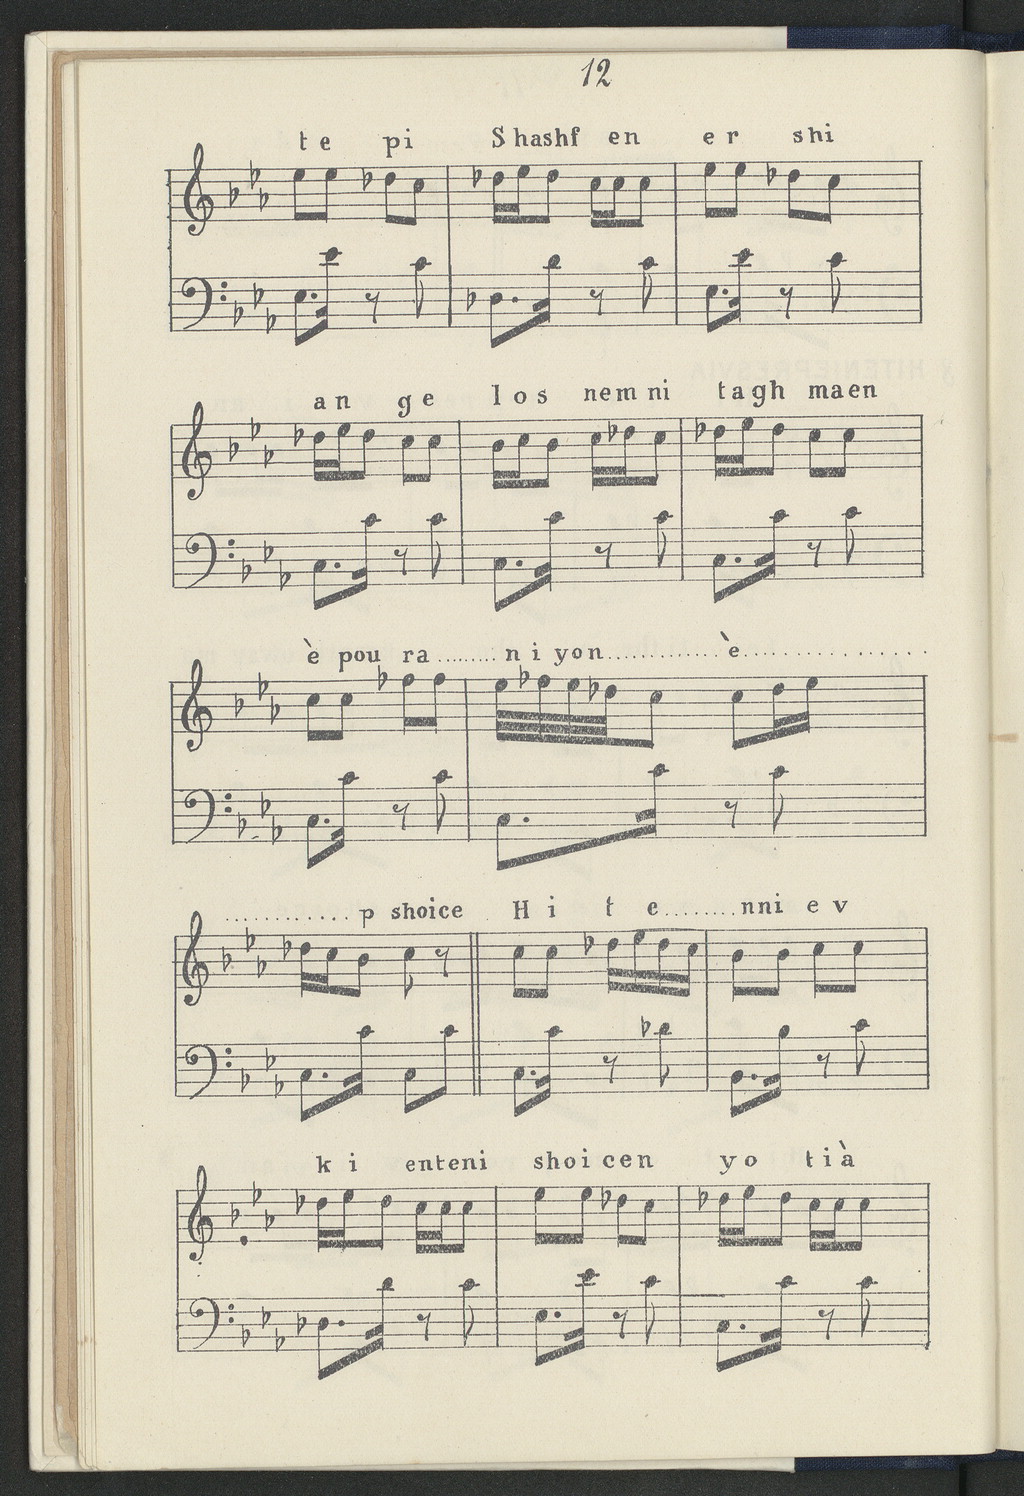 12
te pi Shashf en er shi
an ge los nem ni tagh maen
è pou ra ......... n i yon ............. è ...................
............. p shoice H i t e ........ nni e v
k i enteni shoi cen yo tià